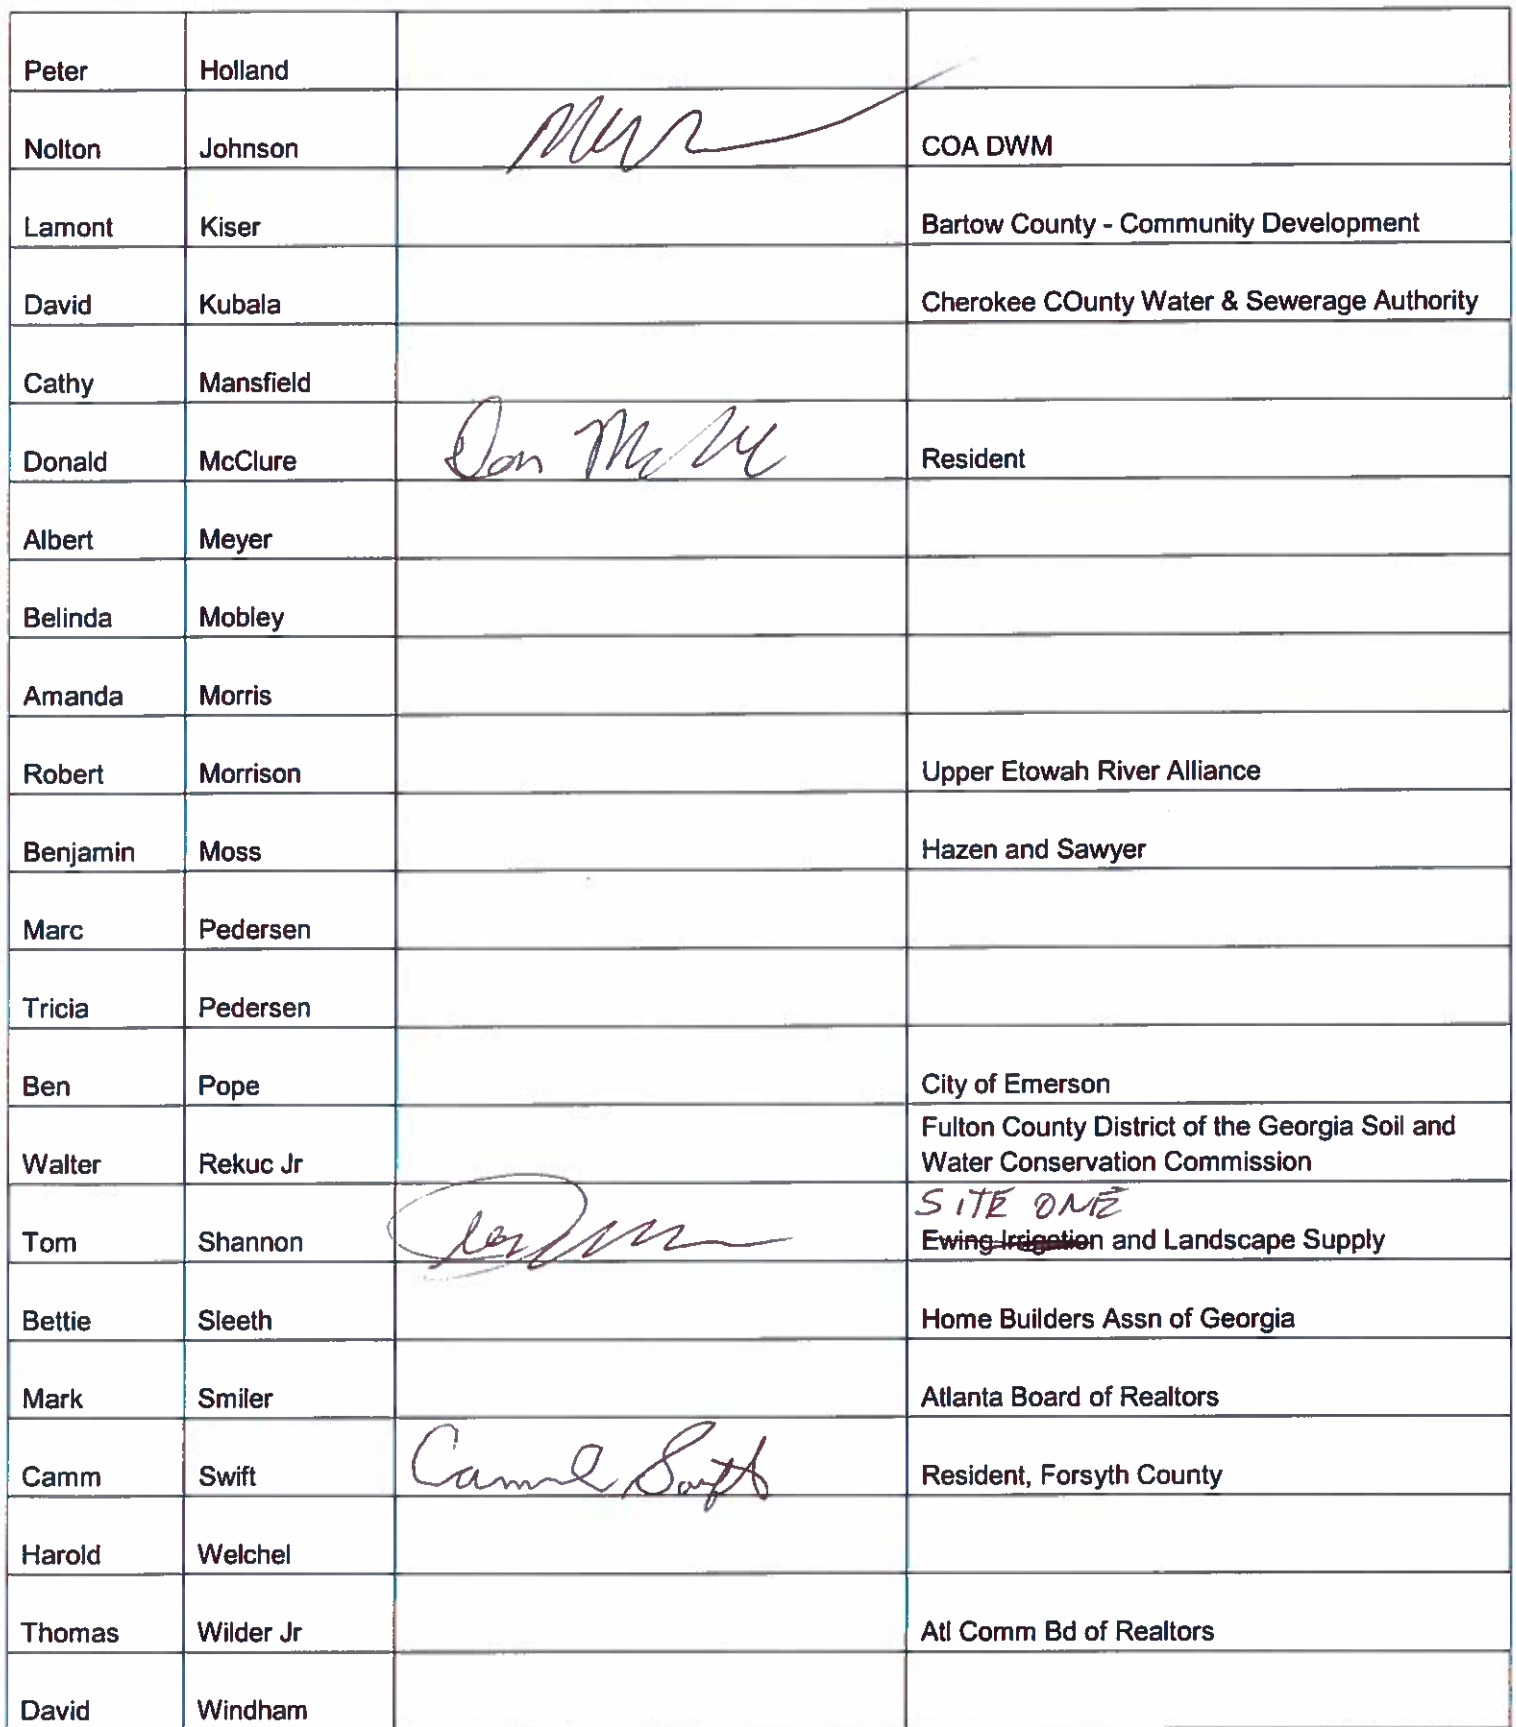 Peter Holland
Nolton Johnson COA DWM
Lamont Kiser Bartow County - Community Development
David Kubala Cherokee COunty Water & Sewerage Authority
Cathy Mansfield
Donald McClure Don Resident
Albert Meyer
Belinda Mobley
Amanda Morris
Robert Morrison Upper Etowah River Alliance
Benjamin Moss Hazen and Sawyer
Marc Pedersen
Tricia Pedersen
Ben Pope City of Emerson
Fulton County District of the Georgia Soil and
Walter Rekuc Jr Water Conservation Commission
SITE ONE
Tom Shannon Ewing Irrigation and Landscape Supply
Bettie Sleeth Home Builders Assn of Georgia
Mark Smiler Atlanta Board of Realtors
Camm Swift Camm Swift Resident, Forsyth County
Harold Welchel
Thomas Wilder Jr Atl Comm Bd of Realtors
David Windham